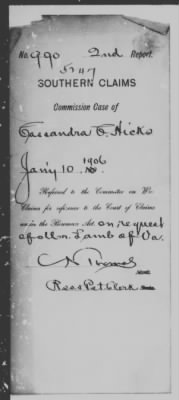 No. 990 2nd Report.
5747
SOUTHERN CLAIMS
Commission Case of
Cassandra E. Hicks
Jan'y 10 1906
Referred to the Committee on War
Claims for reference to the Court of Claims
on request
of Mr. Lamb of Va.
Res & Pet. Clerk